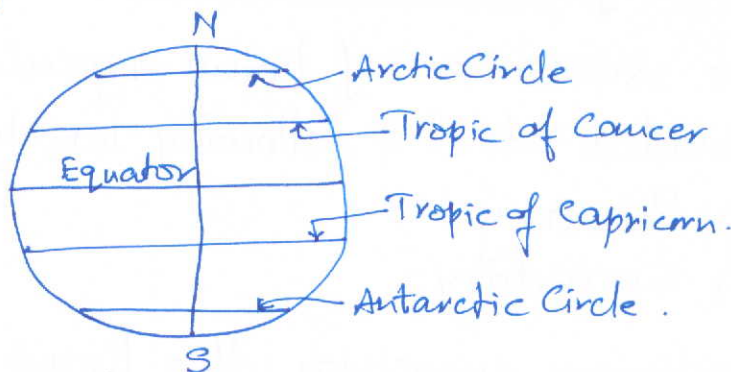 N
Arctic Circle
Tropic of Cancer
Equator
Tropic of Capricorn.
Antarctic Circle.
S